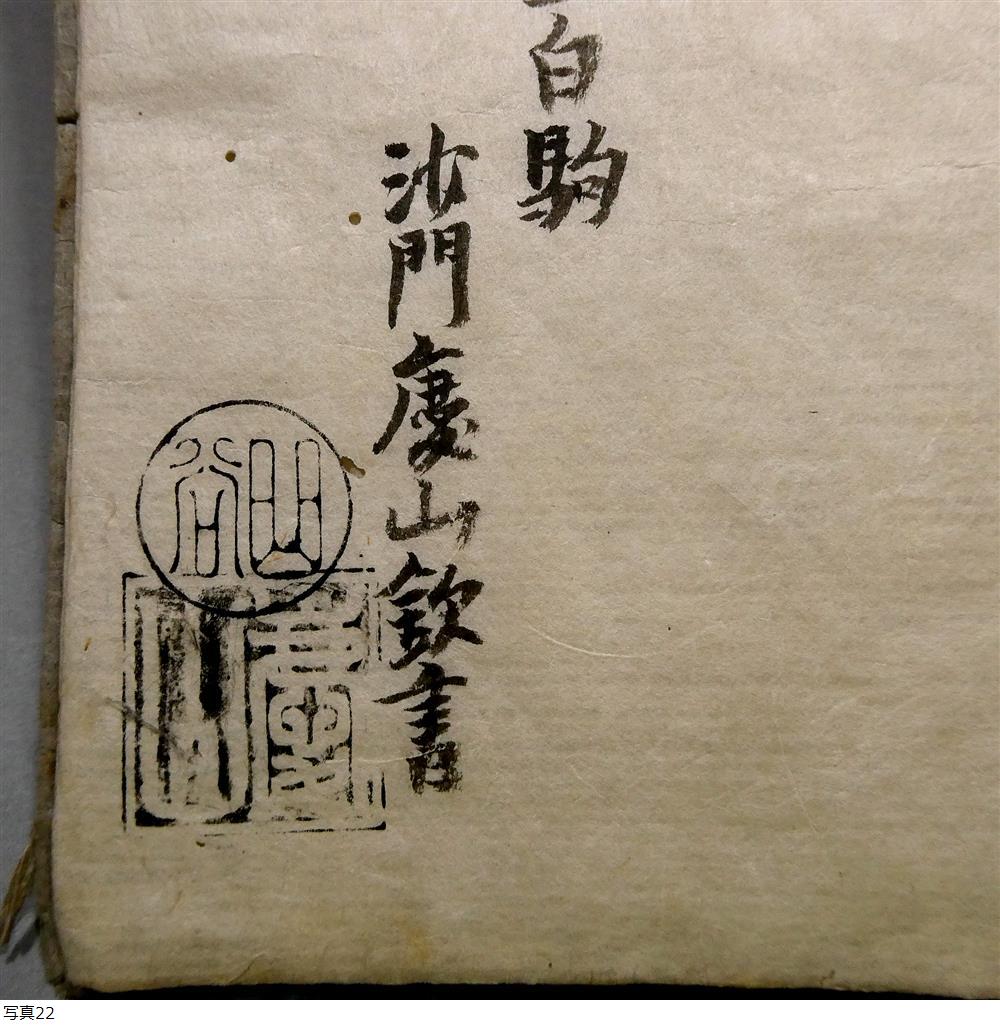 白駒
沙門慶山欽書
山谷
写真22